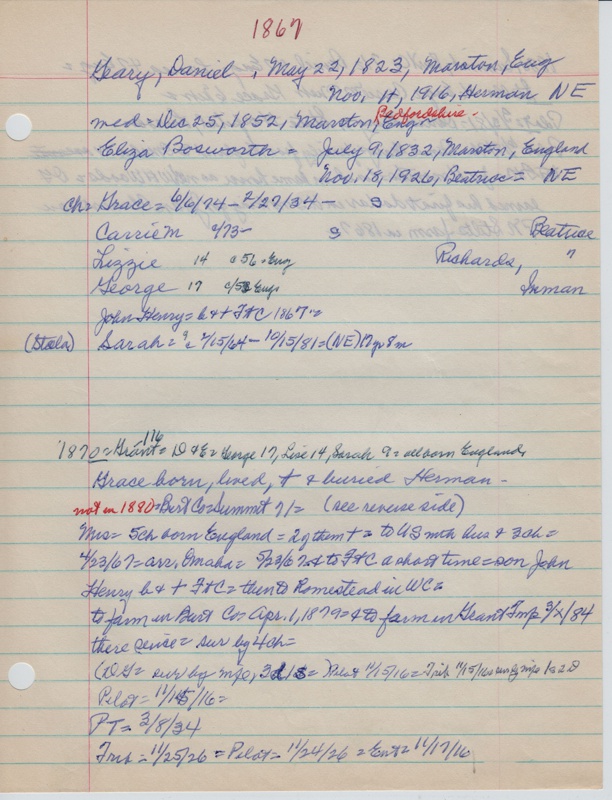 1867
Geary, Daniel, May 22, 1823, Marston, Eng
Nov. 17, 1916, Herman NE
med = Dec 25, 1852, Marston, Eng Bedfordshire.
Eliza Bosworth = July 9, 1832, Marston, England
Nov. 18, 1926, Beatrice = NE
ch = Grace = 6/6/74 - 2/27/34 - g
Carrie M c/73 - g Beatrice
Lizzie 14 c/56 = Eng Richards, "
George 17 c/53 Eng Inman
John Henry = b & t FtC 1867 =
Sarah = 9/15/64 - 10/15/81 = (NE) 17y 8m
1870 = Grant = 176 = D & E = George 17, Lise 14, Sarah 9 = all born England,
Grace born, lived, t & buried Herman -
not in 1880 = Burt Co = Summit 71 = (see reverse side)
Mrs = 5ch born England = 2 of them t = to US with hus & 3ch =
4/23/67 = arr. Omaha = 5/23/67 & to FtC a short time = son John
Henry b & t FtC = then to Homestead in WC =
to farm in Burt Co = Apr. 1, 1879 = & to farm in Grant Twp 3/x/84
there since = sur by 4ch =
(DG = sur by wife, 3d 1s =) Pilot 11/15/16 = Trib 11/15/16
Pilot = 11/15/16 =
PT = 3/8/34
Trib = 11/25/26 = Pilot = 11/24/26 = Ent = 11/17/16